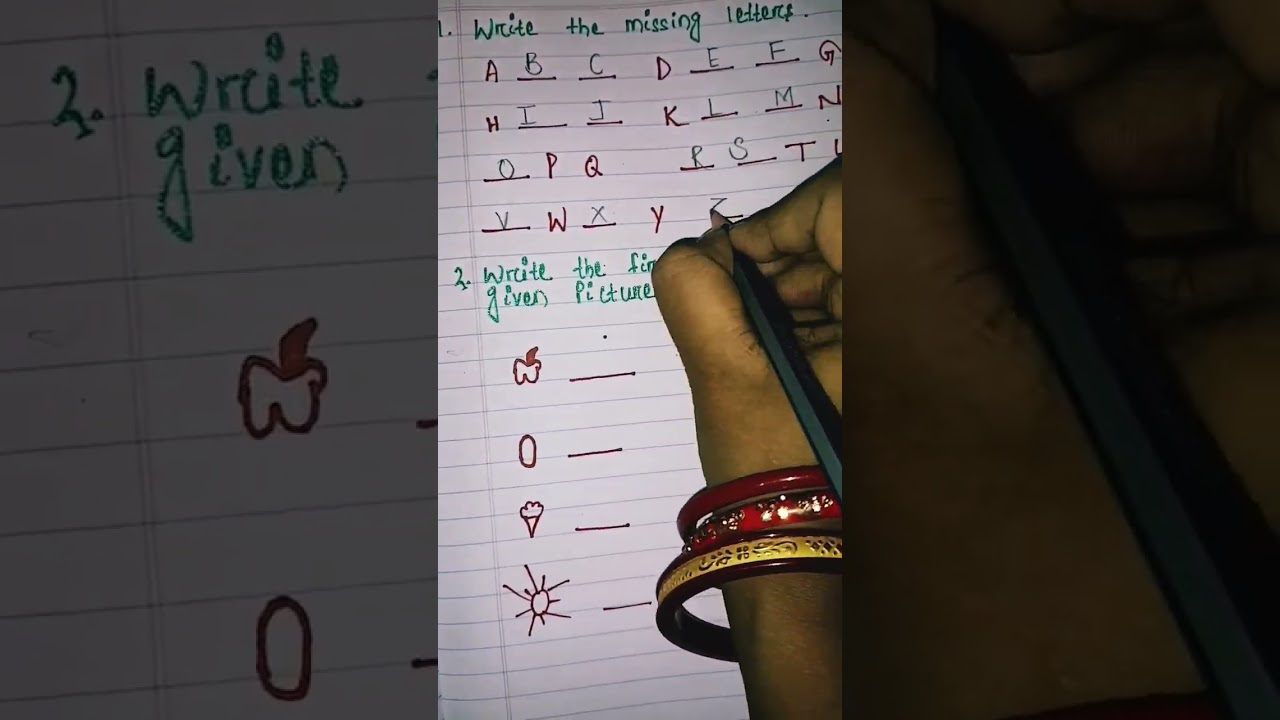 1. Write the missing letters.
A B C D E F G
H I J K L M N
O P Q R S T
V W X Y Z
2. Write the
given Picture
2. Write
given